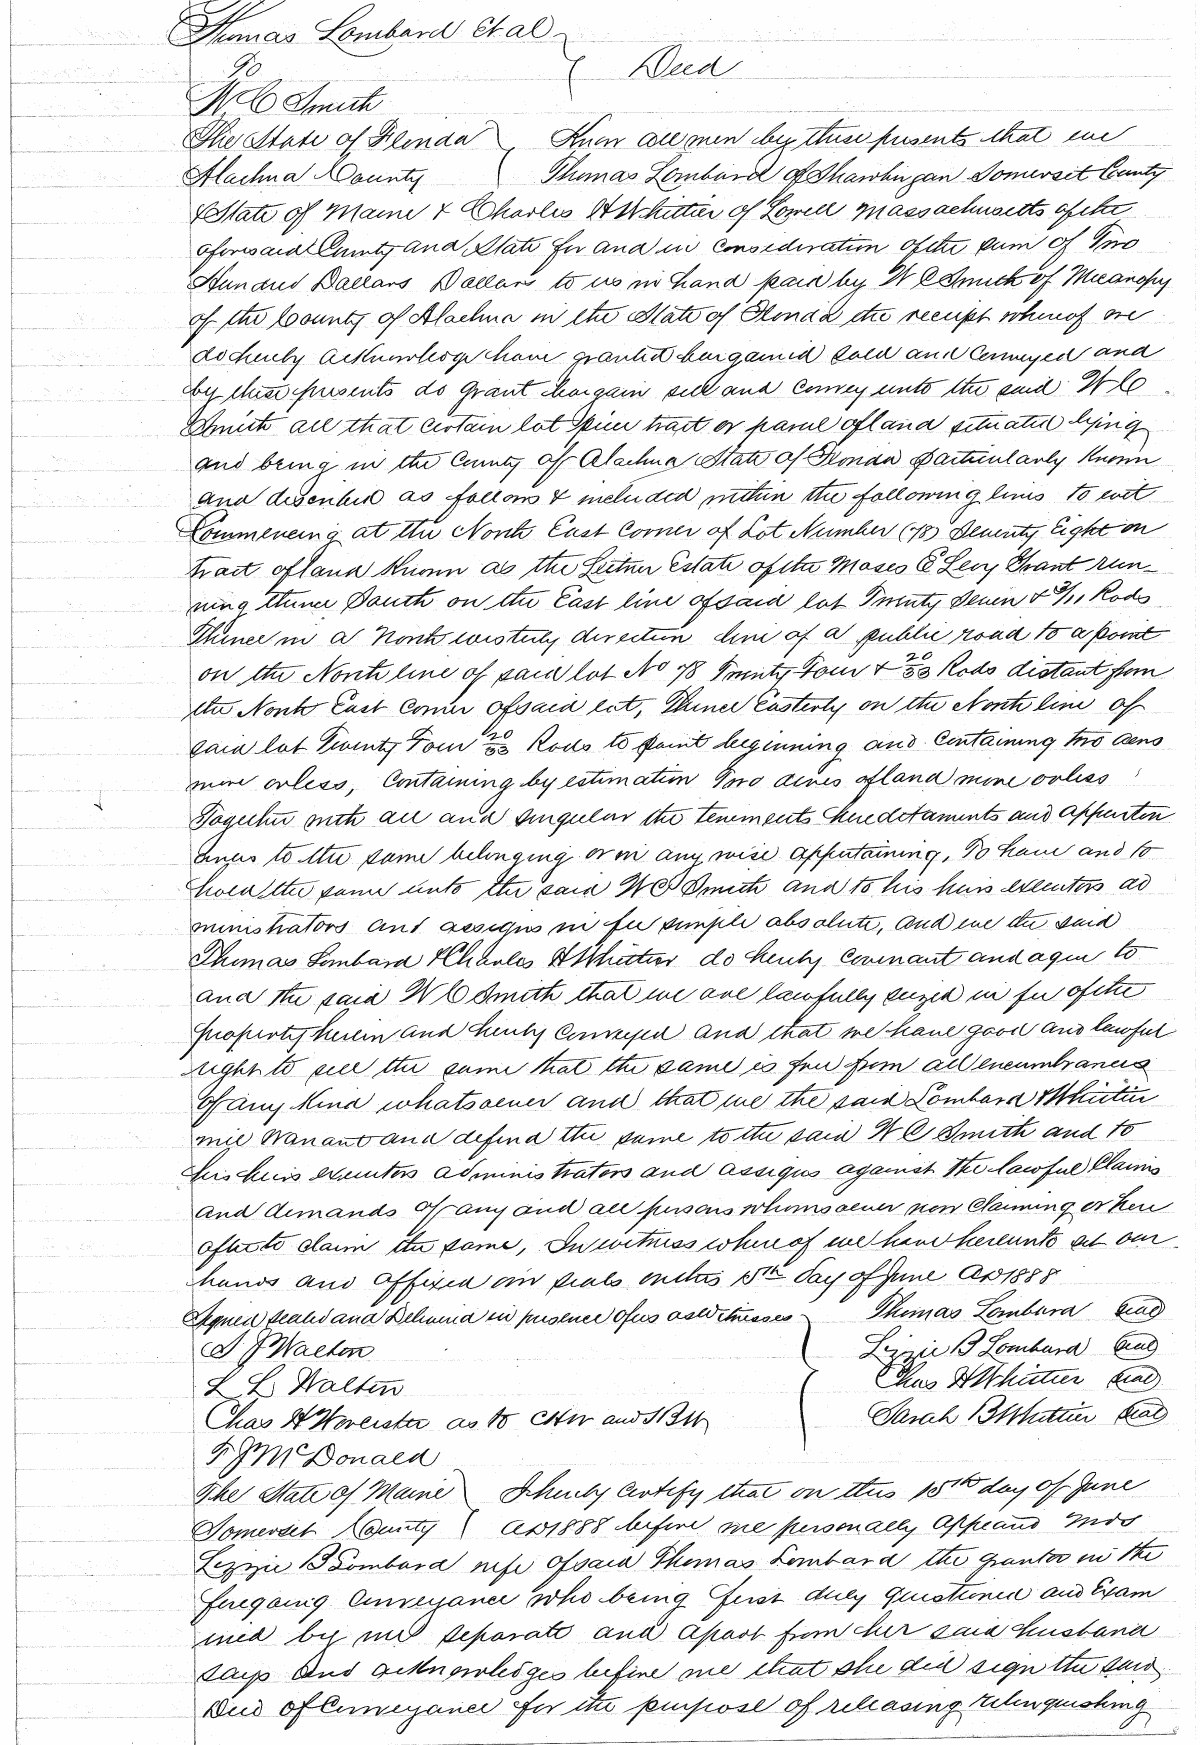 Thomas Lombard et al
To
Deed
W C Smith
The State of Florida Know all men by these presents that we
Alachua County Thomas Lombard of Skawhigan Somerset County
& State of Maine & Charles H Whittier of Lowell Massachusetts of the
aforesaid County and State for and in consideration of the sum of Two
Hundred Dallars Dallars to us in hand paid by W C Smith of Micanopy
of the County of Alachua in the State of Florida the receipt whereof we
do hereby acknowledge have granted bargained sold and conveyed and
by these presents do grant bargain sell and convey unto the said W C
Smith all that certain lot piece tract or parcel of land situated lying
and being in the County of Alachua State of Florida particularly known
and described as follows & included within the following lines to wit
Commencing at the North East Corner of Lot Number (78) Seventy Eight on
tract of land known as the Leitner Estate of the Moses E Levy Grant run-
ning thence South on the East line of said lot Twenty Seven & 3/11 Rods
Thence in a North westerly direction line of a public road to a point
on the North line of said lot No 78 Twenty Four & 20/33 Rods distant from
the North East Corner of said lot, Thence Easterly on the North line of
said lot Twenty Four 20/33 Rods to point beginning and containing two acres
more or less, containing by estimation Two acres of land more or less
Together with all and singular the tenements hereditaments and appurten
ances to the same belonging or in any wise appertaining, To have and to
hold the same unto the said W C Smith and to his heirs executors ad
ministrators and assigns in fee simple absolute, and we the said
Thomas Lombard & Charles H Whittier do hereby covenant and agree to
and the said W C Smith that we are lawfully seized in fee of the
property herein and hereby conveyed and that we have good and lawful
right to sell the same that the same is free from all encumbrances
of any kind whatsoever and that we the said Lombard & Whittier
will warrant and defend the same to the said W C Smith and to
his heirs executors administrators and assigns against the lawful claims
and demands of any and all persons whomsoever now claiming or here
after to claim the same, In witness whereof we have hereunto set our
hands and affixed our seals on this 15th day of June AD 1888
Signed sealed and Delivered in presence of us as Witnesses Thomas Lombard seal
S J Walton Lizzie B Lombard seal
L L Walton Chas H Whittier seal
Chas H Worcister as to CHW and SBW Sarah B Whittier seal
F J McDonald
The State of Maine I hereby certify that on this 15th day of June
Somerset County AD 1888 before me personally appeared Mrs
Lizzie B Lombard wife of said Thomas Lombard the grantor in the
foregoing conveyance who being first duly questioned and Exam
ined by me separate and apart from her said husband
says and acknowledges before me that she did sign the said
Deed of Conveyance for the purpose of releasing relinquishing